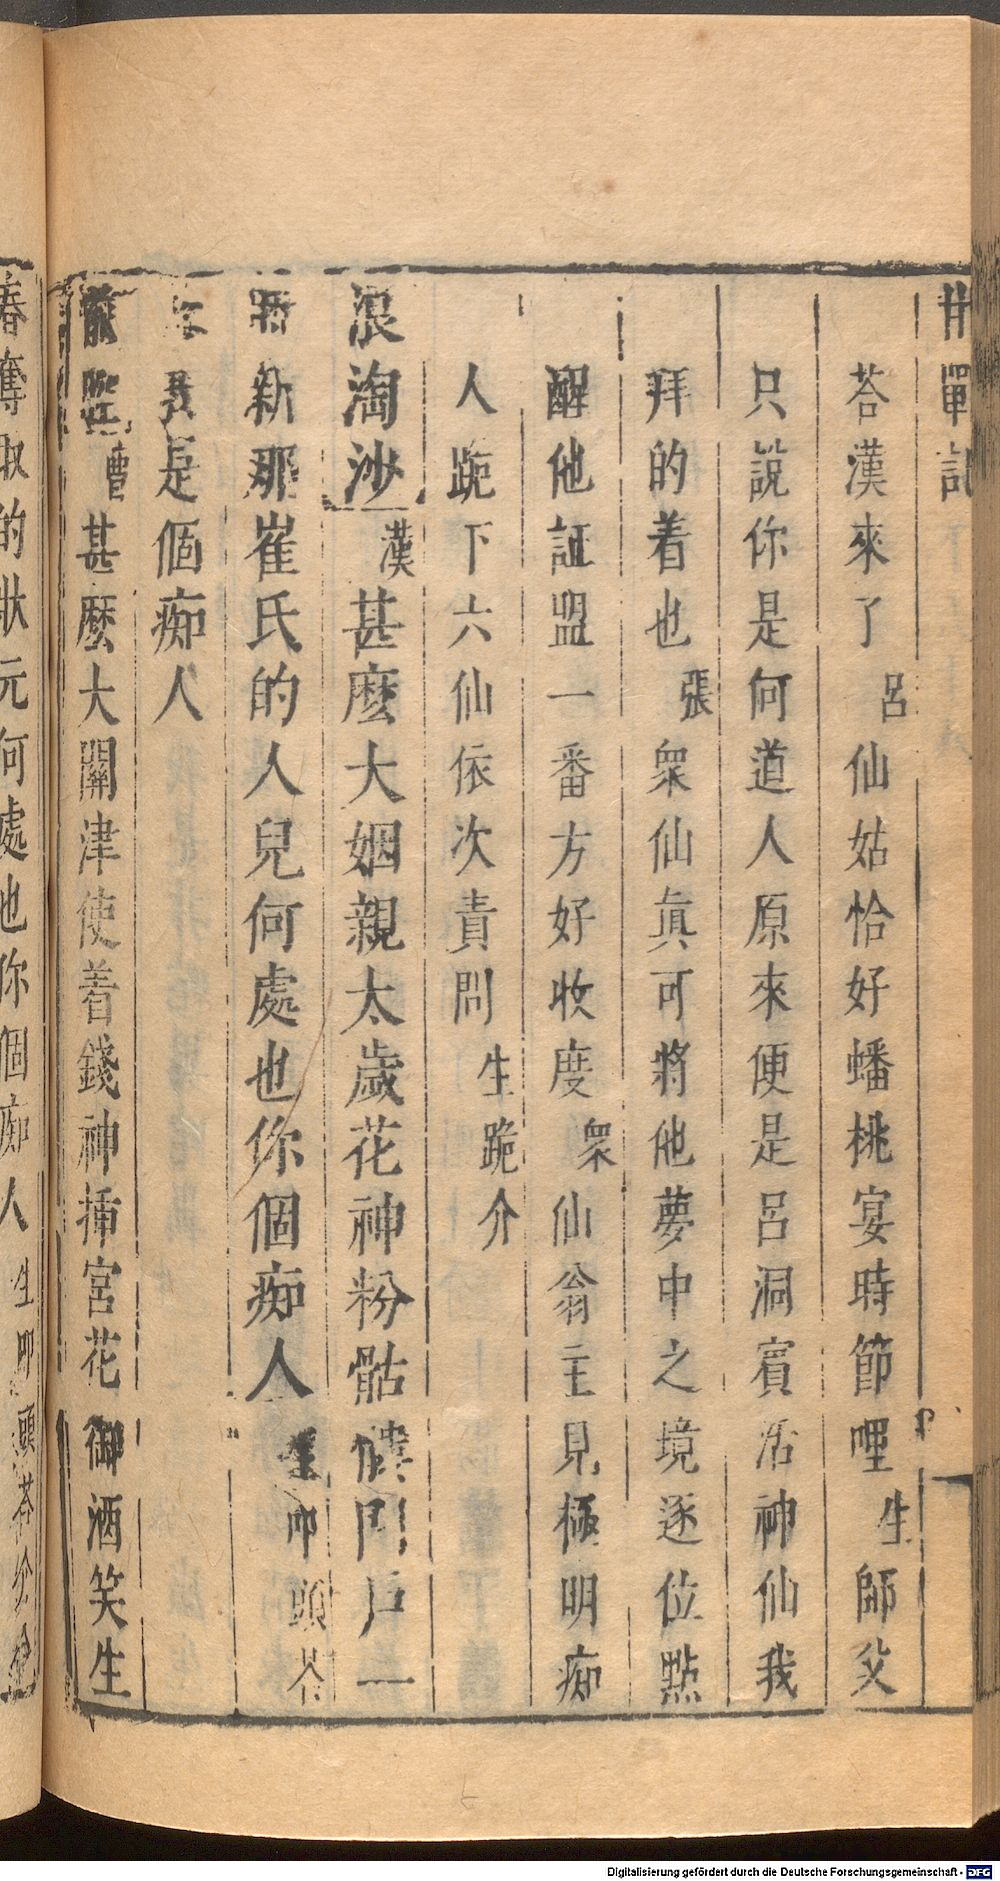 邯單記
荅漢來了呂仙姑恰好蟠桃宴時節哩生師父
只說你是何道人原來便是呂洞賓活神仙我
拜的着也張衆仙眞可將他夢中之境逐位點
醒他証盟一番方好收度衆仙翁主見極明痴
人跪下六仙依次責問生跪介
浪淘沙漢甚麽大姻親太歲花神粉骷髏門戶一
時新那崔氏的人兒何處也你個痴人生叩頭荅
我是個痴人
前腔曹甚麽大關津使着錢神揷宮花御酒笑生
春奪取的狀元何處也你個痴人生叩頭荅
Digitalisierung gefördert durch die Deutsche Forschungsgemeinschaft - DFG